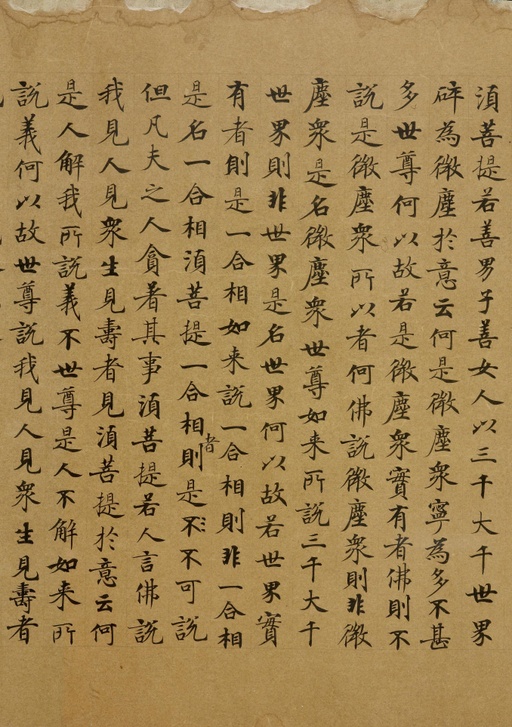 須菩提若善男子善女人以三千大千世界
碎為微塵於意云何是微塵衆寧為多不甚
多世尊何以故若是微塵衆實有者佛則不
說是微塵衆所以者何佛說微塵衆則非微
塵衆是名微塵衆世尊如来所說三千大千
世界則非世界是名世界何以故若世界實
有者則是一合相如来說一合相則非一合相
是名一合相須菩提一合相者則是不不可說
但凡夫之人貪著其事須菩提若人言佛說
我見人見衆生見壽者見須菩提於意云何
是人解我所說義不世尊是人不解如来所
說義何以故世尊說我見人見衆生見壽者